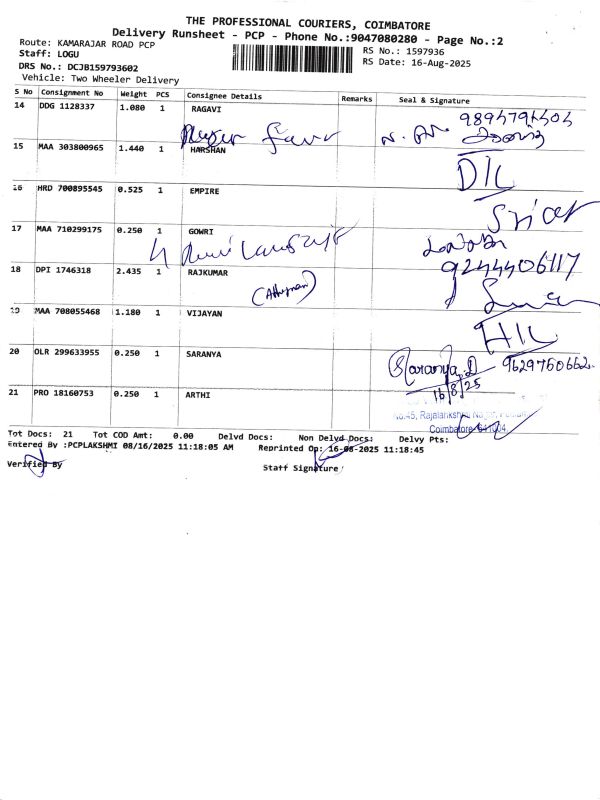 THE PROFESSIONAL COURIERS, COIMBATORE
Delivery Runsheet - PCP - Phone No.:9047080280 - Page No.:2
Route: KAMARAJAR ROAD PCP
Staff: LOGU
DRS No.: DCJB159793602
Vehicle: Two Wheeler Delivery
RS No.: 1597936
RS Date: 16-Aug-2025
S No Consignment No Weight PCS Consignee Details Remarks Seal & Signature
14 DDG 1128337 1.080 1 RAGAVI
15 MAA 303800965 1.440 1 HARSHAN
D/L
16 HRD 700895545 0.525 1 EMPIRE
17 MAA 710299175 0.250 1 GOWRI
9244406117
18 DPI 1746318 2.435 1 RAJKUMAR
19 MAA 708055468 1.180 1 VIJAYAN
H/L
20 OLR 299633955 0.250 1 SARANYA
Saranya.D 9629760662
16/8/25
21 PRO 18160753 0.250 1 ARTHI
No.45, Rajalakshmi
Coimbatore
Tot Docs: 21 Tot COD Amt: 0.00 Delvd Docs: Non Delvd Docs: Delvy Pts:
Entered By :PCPLAKSHMI 08/16/2025 11:18:05 AM Reprinted On: 16-08-2025 11:18:45
Verified By Staff Signature